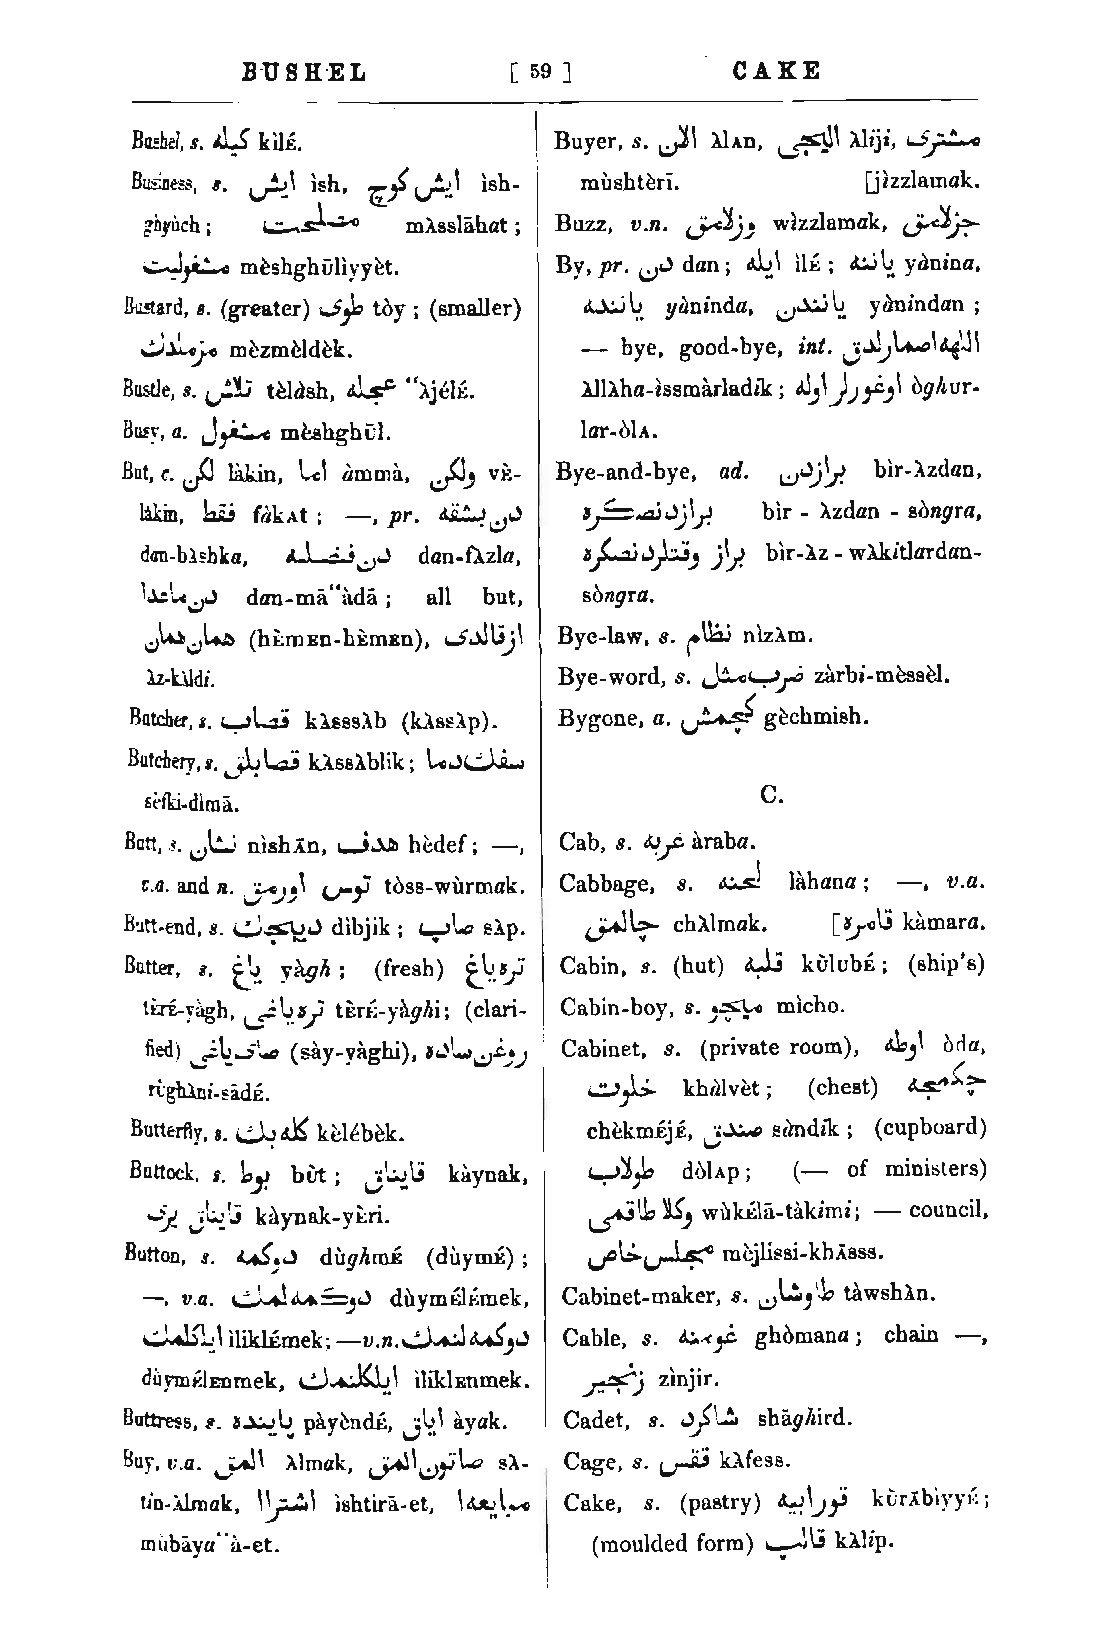 BUSHEL [ 59 ] CAKE
Bushel, s. كیله kìlÉ.
Business, s. ایش ìsh, ایش كوچ ìsh-
ghyùch; مصلحت mλsslāhat;
مشغولیت mèshghūlìyyèt.
Bustard, s. (greater) طوی tòy; (smaller)
مزملدك mèzmèldèk.
Bustle, s. تلاش tèlàsh, عجله “λjélÉ.
Busy, a. مشغول mèshghūl.
But, c. لكن làkin, اما àmmà, ولكن vÈ-
làkin, فقط fàkᴀt; —, pr. دن بشقه
dan-bλshka, دن فضله dan-fλzla,
دن ماعدا dan-mā“àdā; all but,
همان همان (hÈmᴇn-hÈmᴇn), ازقالدی
λz-kλldi.
Butcher, s. قصاب kλsssλb (kλssλp).
Butchery, s. قصابلق kλssλblik; سفك دما
sèfki-dìmā.
Butt, s. نشان nìshĀn, هدف hèdef; —,
v.a. and n. توس اورمق tòss-wùrmak.
Butt-end, s. دیپجك dìbjik; صاپ sλp.
Butter, s. یاغ yàgh; (fresh) تره یاغ
tÈrÉ-yàgh, تره یاغی tÈrÉ-yàghi; (clari-
fied) صای یاغی (sày-yàghi), روغن ساده
rùghλni-sādÉ.
Butterfly, s. كله بك kèlébèk.
Buttock, s. بوط bùt; قایناق kàynak,
قایناق یری kàynak-yÈri.
Button, s. دوكمه dùghmÉ (dùymÉ);
—, v.a. دوكمه لمك dùymÉlÉmek,
ایلكلمك ìliklÉmek; —v.n. دوكمه لنمك
dùymÉlᴇnmek, ایلكلنمك ìliklᴇnmek.
Buttress, s. پاینده pàyèndÉ, ایاق àyak.
Buy, v.a. المق λlmak, صاتون المق sλ-
tin-λlmak, اشترا ìshtirā-et, مبایعه
mùbāya“à-et.
Buyer, s. الان λlᴀn, الیجی λliji, مشتری
mùshtèrī. [jìzzlamak.
Buzz, v.n. وزلامق wìzzlamak, جزلامق
By, pr. دن dan; ایله ìlÉ; یاننه yànina,
یاننده yàninda, یانندن yànindan;
— bye, good-bye, int. اللهه اصمارلدق
λllλha-ìssmàrladik; اوغورلر اوله òghur-
lar-òlᴀ.
Bye-and-bye, ad. برازدن bìr-λzdan,
برازدنصكره bìr - λzdan - sòngra,
براز وقتلردنصكره bìr-λz - wλkitlardan-
sòngra.
Bye-law, s. نظام nìzλm.
Bye-word, s. ضرب مثل zàrbi-mèssèl.
Bygone, a. كچمش gèchmish.
C.
Cab, s. عربه àraba.
Cabbage, s. لحنه làhana; —, v.a.
چالمق chλlmak. [قامره kàmara.
Cabin, s. (hut) قلبه kùlubÉ; (ship's)
Cabin-boy, s. میچو mìcho.
Cabinet, s. (private room), اوطه òda,
خلوت khàlvèt; (chest) چكمجه
chèkmÉjÉ, صندق sàndik; (cupboard)
طولاب dòlᴀp; (— of ministers)
وكلا طاقمی wùkÉlā-tàkimi; — council,
مجلس خاص mèjlissi-khĀsss.
Cabinet-maker, s. طاوشان tàwshλn.
Cable, s. غومنه ghòmana; chain —,
زنجیر zìnjir.
Cadet, s. شاكرد shāghird.
Cage, s. قفس kλfess.
Cake, s. (pastry) قورابیه kùrĀbìyyÉ;
(moulded form) قالپ kλlip.